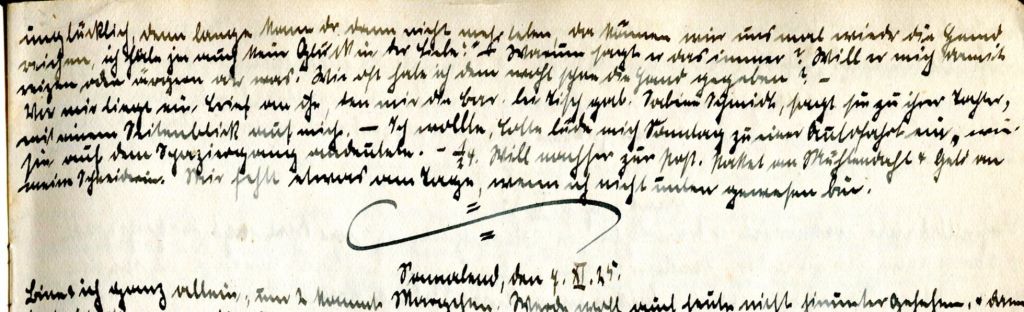 unglücklich, denn lange kann er dann nicht mehr leben, da können wir uns mal wieder die Hand
reichen, ich habe ja auch kein Glück in der Liebe." – Warum sagt er das immer? Will er mich damit
reizen oder ärgern oder was? Wie oft habe ich dem nicht schon die Hand gegeben? –
Vor mir liegt ein Brief an ihn, den mir die bei Tisch gab. Sabine Schmidt, sagt sie zu ihrer Tochter,
mit einem Seitenblick auf mich. – Ich wollte, Lotte lüde mich Sonntag zu einer Autofahrt ein, wie
sie auf dem Spaziergang andeutete. – ½4. Will nachher zur Post. Paket an Mühlendahl & Geld an
meine Schneiderin. Mir fehlt etwas am Tage, wenn ich nicht unten gewesen bin.
Sonnabend, den 7. XI. 25.
Bin ich ganz allein, um 2 kommt Margchen. Werde wohl auch heute nicht hinunter gehen,